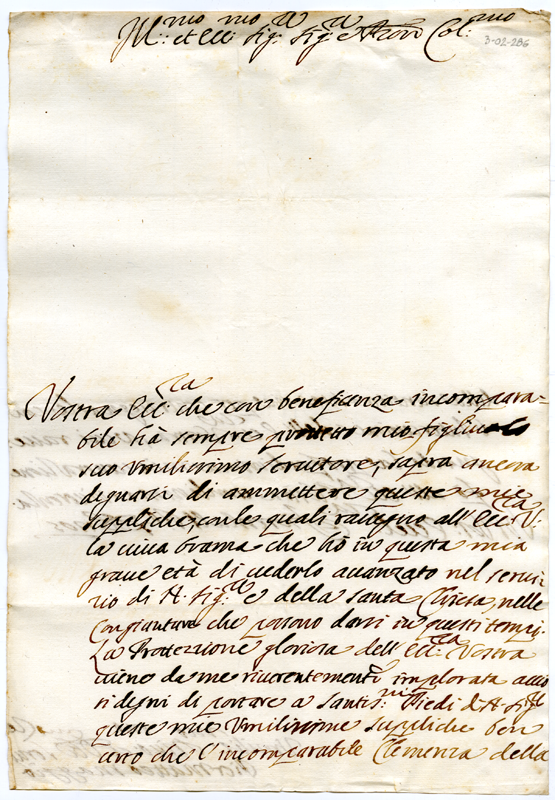 Ill:mo et Ecc:mo Sig:r Sig:r e Pron Col:mo
3-02-286
Vostra Ecc:za che con beneficanza incompara-
bile hà sempre protetto mio figliuolo
suo Vmilissimo Seruitore, saprà ancora
degnarsi di ammettere queste mie
suppliche, con le quali rassegno all' Ecc:za V:
la viua brama che hò in questa mia
graue età di uederlo auanzato nel serui-
zio di N. Sig:re e della Santa Chiesa, nelle
Congiunture che possono darsi in questi tempi.
La Protezzione gloriosa dell' Ecc:za Vostra
viene da me riuerentemente implorata acciò
si degni di portare a Santis:mi Piedi di N. Sig:re
queste mie Vmilissime suppliche ben
certo che l'incomparabile Clemenza della